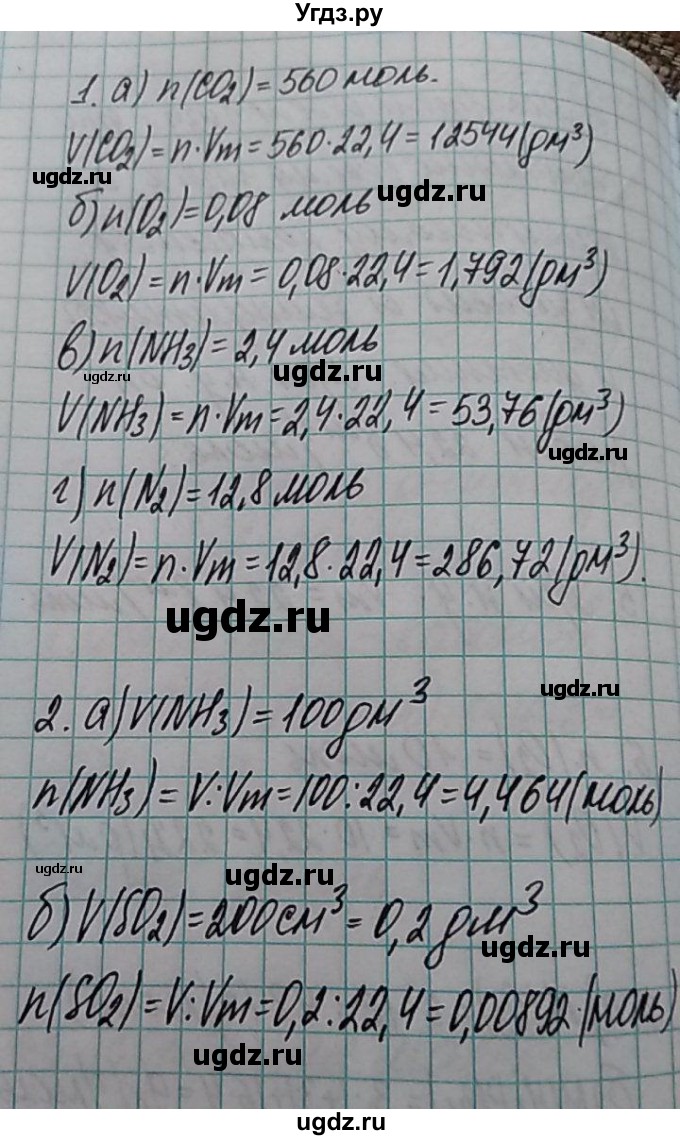 Угдз.ру
1. а) n(CO2) = 560 моль.
V(CO2) = n·Vm = 560·22,4 = 12544(дм³)
ugdz.ru ugdz.ru
б) n(O2) = 0,08 моль ugdz.ru
V(O2) = n·Vm = 0,08·22,4 = 1,792(дм³)
в) n(NH3) = 2,4 моль
ugdz.ru ugdz.ru
V(NH3) = n·Vm = 2,4·22,4 = 53,76(дм³)
ugdz.ru
г) n(N2) = 12,8 моль
V(N2) = n·Vm = 12,8·22,4 = 286,72(дм³).
ugdz.ru
ugdz.ru
2. а) V(NH3) = 100 дм³
n(NH3) = V:Vm = 100:22,4 = 4,464(моль)
ugdz.ru ugdz.ru
б) V(SO2) = 200 см³ = 0,2 дм³
ugdz.ru
n(SO2) = V:Vm = 0,2:22,4 = 0,00892 (моль)
ugdz.ru
ugdz.ru